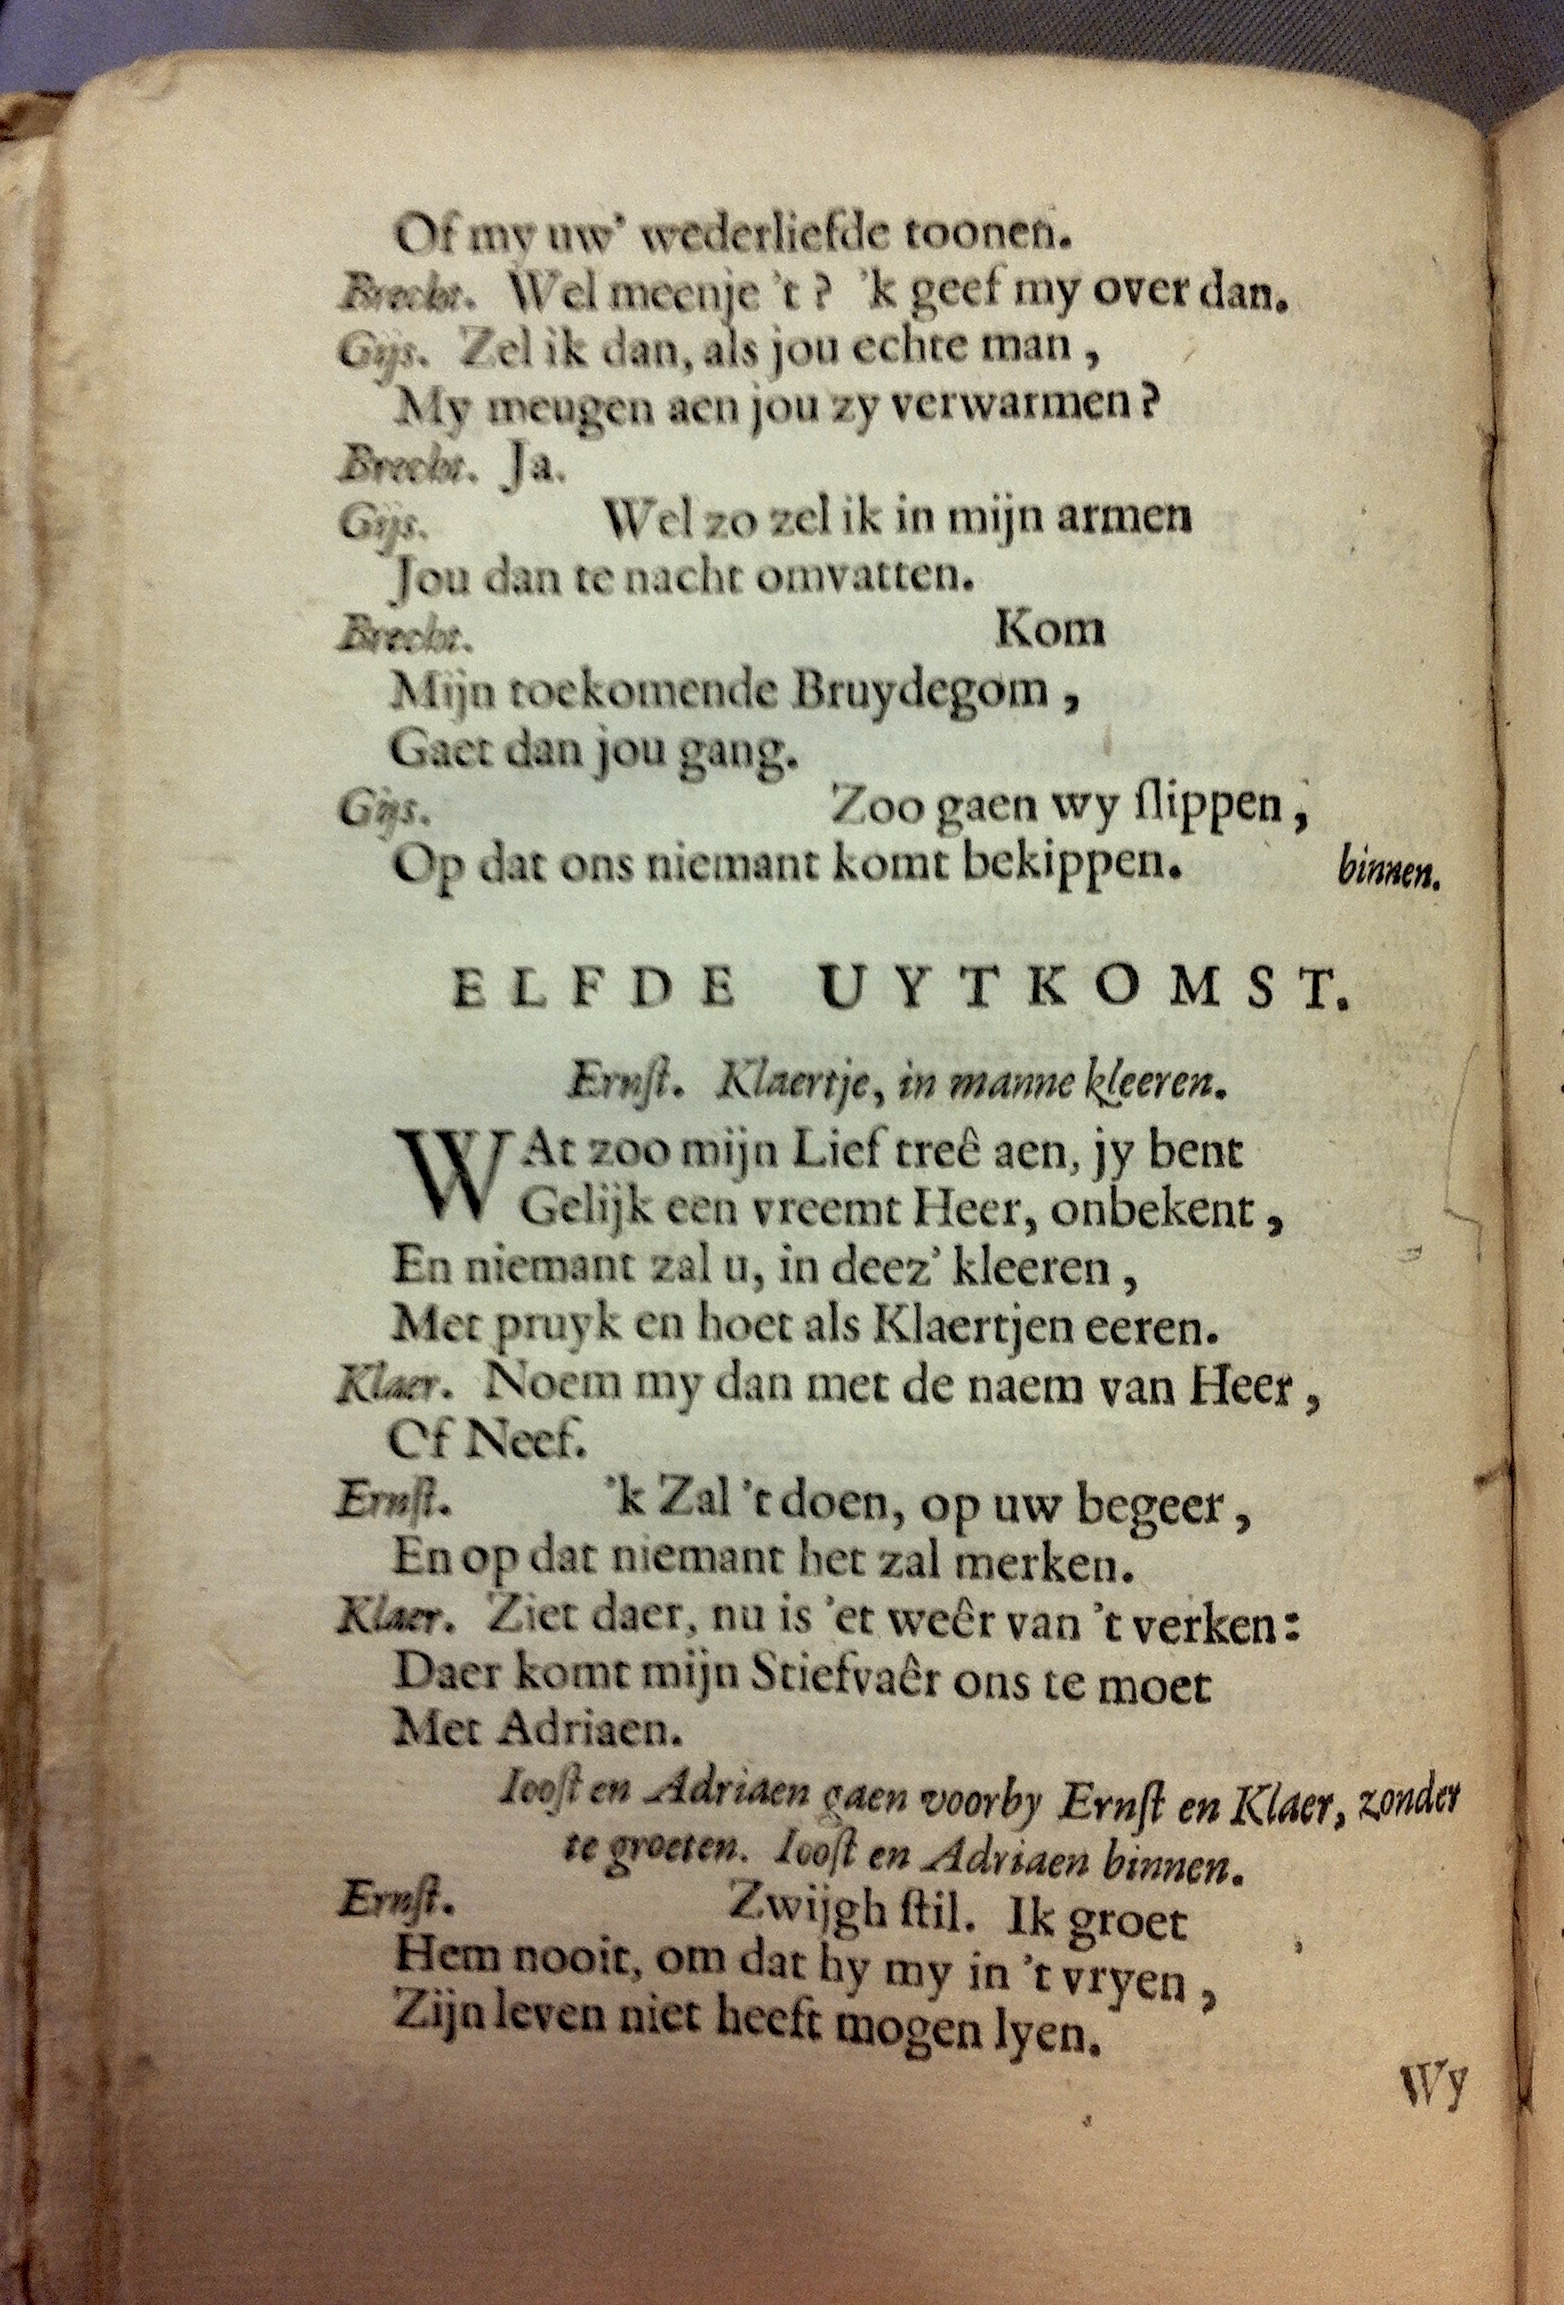 Of my uw' wederliefde toonen.
Brecht. Wel meenje 't? 'k geef my over dan.
Gijs. Zel ik dan, als jou echte man,
My meugen aen jou zy verwarmen?
Brecht. Ja.
Gijs. Wel zo zel ik in mijn armen
Jou dan te nacht omvatten.
Brecht. Kom
Mijn toekomende Bruydegom,
Gaet dan jou gang.
Gijs. Zoo gaen wy ſlippen,
Op dat ons niemant komt bekippen. binnen.
ELFDE UYTKOMST.
Ernſt. Klaertje, in manne kleeren.
WAt zoo mijn Lief treê aen, jy bent
Gelijk een vreemt Heer, onbekent,
En niemant zal u, in deez' kleeren,
Met pruyk en hoet als Klaertjen eeren.
Klaer. Noem my dan met de naem van Heer,
Of Neef.
Ernſt. 'k Zal 't doen, op uw begeer,
En op dat niemant het zal merken.
Klaer. Ziet daer, nu is 'et weêr van 't verken:
Daer komt mijn Stiefvaêr ons te moet
Met Adriaen.
Iooſt en Adriaen gaen voorby Ernſt en Klaer, zonder
te groeten. Iooſt en Adriaen binnen.
Ernſt. Zwijgh ſtil. Ik groet
Hem nooit, om dat hy my in 't vryen,
Zijn leven niet heeft mogen lyen.
Wy